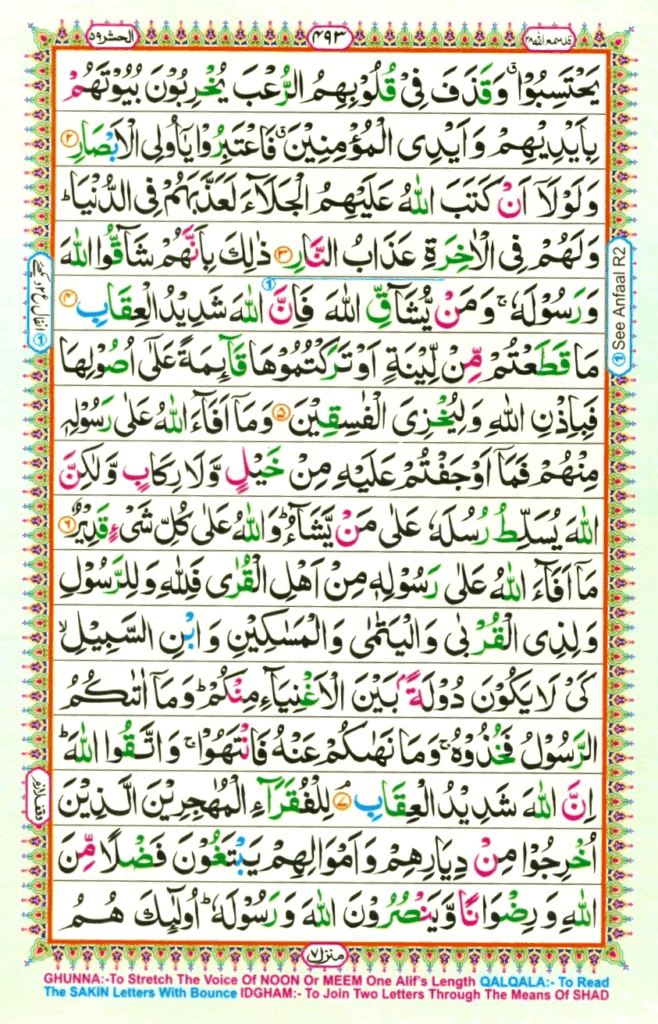 قد سمع الله ٢٨
٤٩٣
الحشر ٥٩
يَحْتَسِبُوْا ۗ وَقَذَفَ فِيْ قُلُوْبِهِمُ الرُّعْبَ يُخْرِبُوْنَ بُيُوْتَهُمْ
بِاَيْدِيْهِمْ وَاَيْدِى الْمُؤْمِنِيْنَ ۗ فَاعْتَبِرُوْا يٰٓاُولِى الْاَبْصَارِ ﴿۲﴾
وَلَوْلَاۤ اَنْ كَتَبَ اللّٰهُ عَلَيْهِمُ الْجَلَآءَ لَعَذَّبَهُمْ فِى الدُّنْيَا ؕ
وَلَهُمْ فِى الْاٰخِرَةِ عَذَابُ النَّارِ ﴿۳﴾ ذٰلِكَ بِاَنَّهُمْ شَآقُّوا اللّٰهَ
وَرَسُوْلَهٗ ۚ وَمَنْ يُّشَآقِّ اللّٰهَ فَاِنَّ اللّٰهَ شَدِيْدُ الْعِقَابِ ﴿۴﴾
مَا قَطَعْتُمْ مِّنْ لِّيْنَةٍ اَوْ تَرَكْتُمُوْهَا قَآئِمَةً عَلٰٓى اُصُوْلِهَا
فَبِاِذْنِ اللّٰهِ وَلِيُخْزِىَ الْفٰسِقِيْنَ ﴿۵﴾ وَمَاۤ اَفَآءَ اللّٰهُ عَلٰى رَسُوْلِهٖ
مِنْهُمْ فَمَاۤ اَوْجَفْتُمْ عَلَيْهِ مِنْ خَيْلٍ وَّلَا رِكَابٍ وَّلٰكِنَّ
اللّٰهَ يُسَلِّطُ رُسُلَهٗ عَلٰى مَنْ يَّشَآءُ ؕ وَاللّٰهُ عَلٰى كُلِّ شَىْءٍ قَدِيْرٌ ﴿۶﴾
مَاۤ اَفَآءَ اللّٰهُ عَلٰى رَسُوْلِهٖ مِنْ اَهْلِ الْقُرٰى فَلِلّٰهِ وَلِلرَّسُوْلِ
وَلِذِى الْقُرْبٰى وَالْيَتٰمٰى وَالْمَسٰكِيْنِ وَابْنِ السَّبِيْلِ ۙ
كَىْ لَا يَكُوْنَ دُوْلَةًۢ بَيْنَ الْاَغْنِيَآءِ مِنْكُمْ ؕ وَمَاۤ اٰتٰىكُمُ
الرَّسُوْلُ فَخُذُوْهُ ۚ وَمَا نَهٰىكُمْ عَنْهُ فَانْتَهُوْا ۚ وَاتَّقُوا اللّٰهَ ؕ
اِنَّ اللّٰهَ شَدِيْدُ الْعِقَابِ ﴿۷﴾ لِلْفُقَرَآءِ الْمُهٰجِرِيْنَ الَّذِيْنَ
اُخْرِجُوْا مِنْ دِيَارِهِمْ وَاَمْوَالِهِمْ يَبْتَغُوْنَ فَضْلًا مِّنَ
اللّٰهِ وَرِضْوَانًا وَّيَنْصُرُوْنَ اللّٰهَ وَرَسُوْلَهٗ ؕ اُولٰٓئِكَ هُمُ
① See Anfaal R2
① انفال ع ۲ دیکھئے
وقف لازم
منزل ٧
GHUNNA:-To Stretch The Voice Of NOON Or MEEM One Alif's Length QALQALA:- To Read
The SAKIN Letters With Bounce IDGHAM:- To Join Two Letters Through The Means Of SHAD